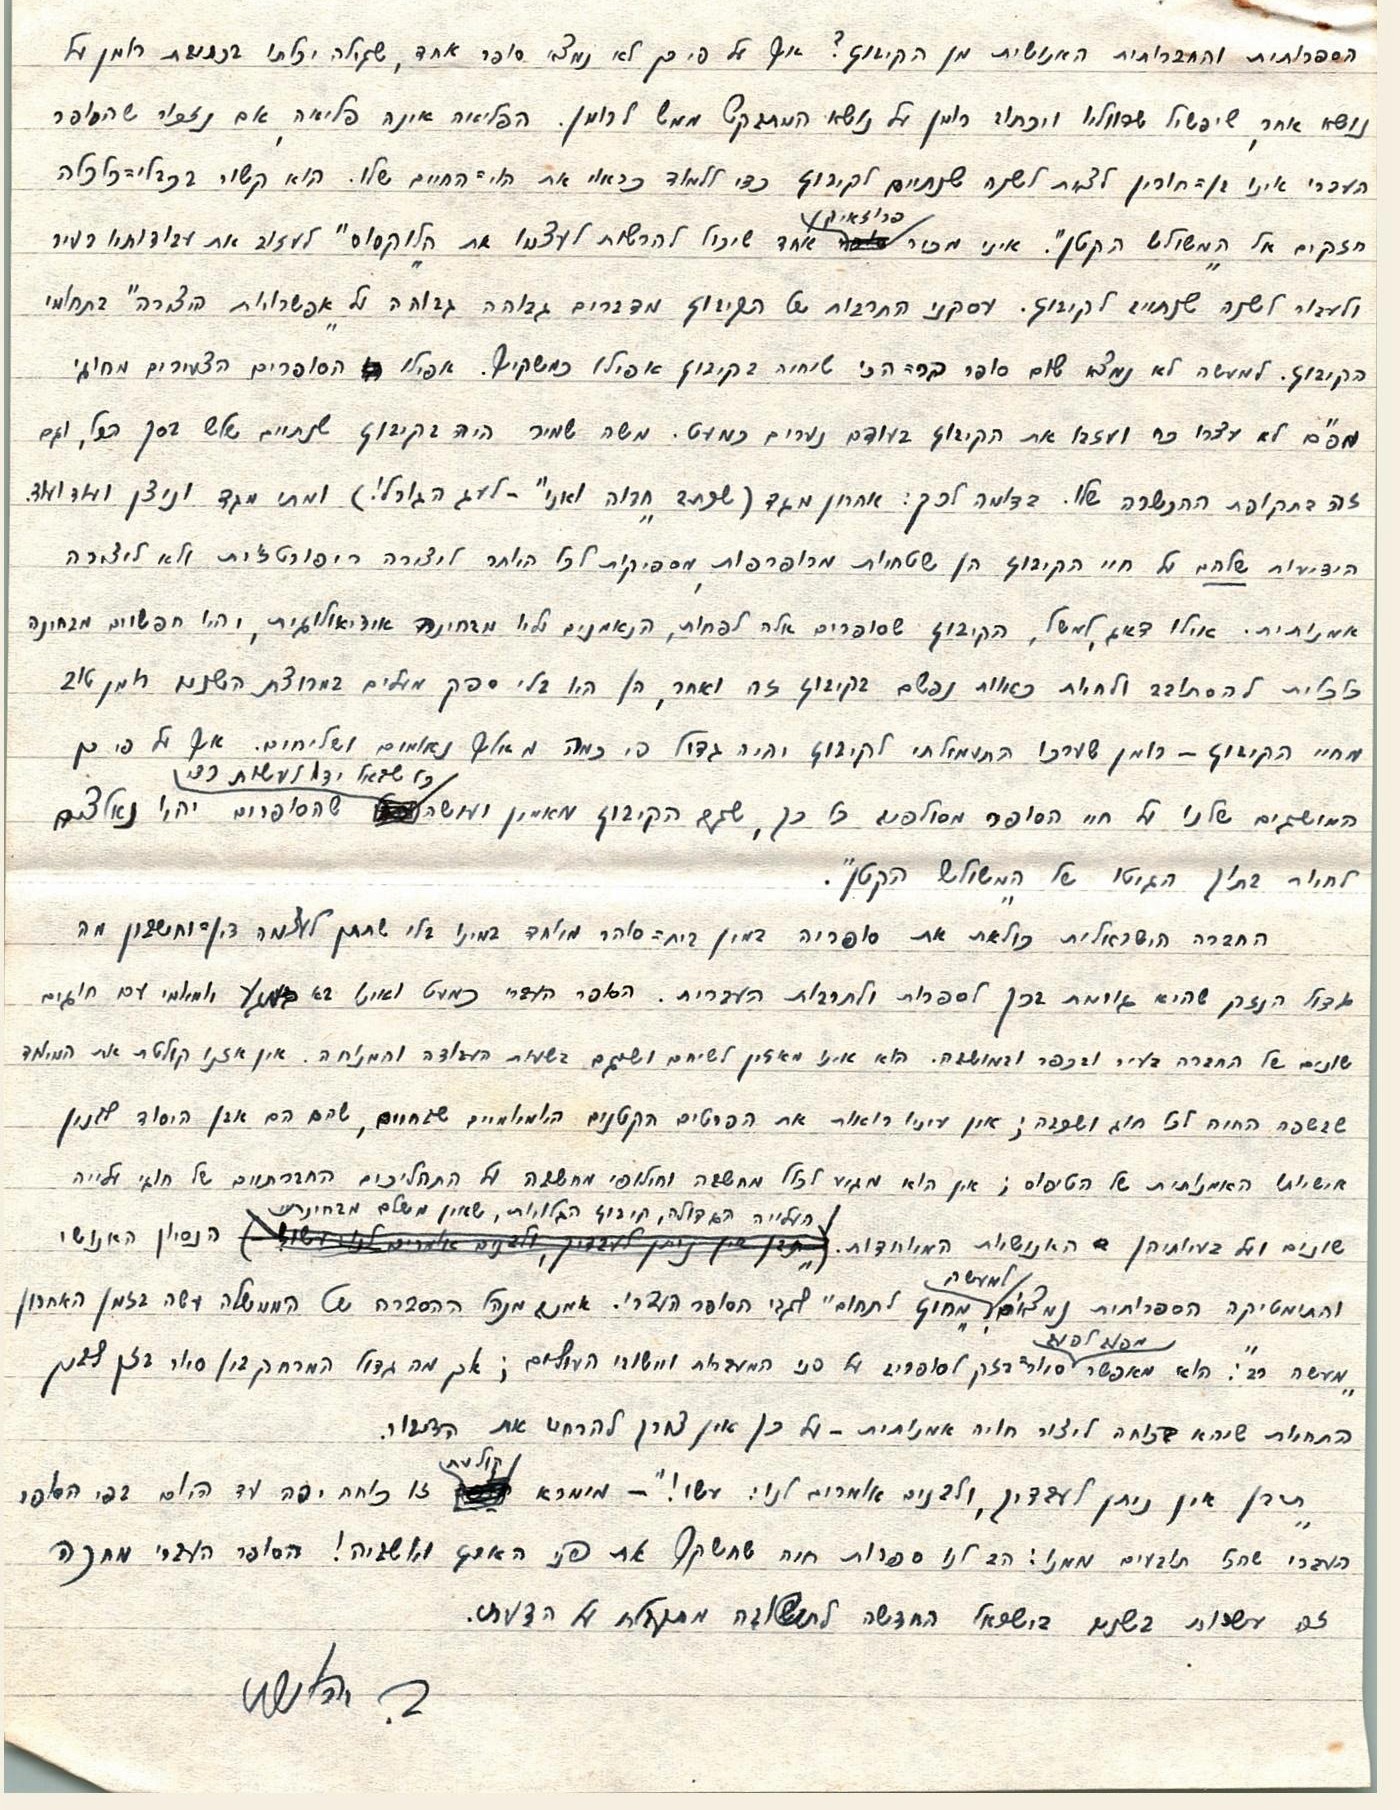 הספרותית והחברותית האנושית מן הקיבוץ? אף על פי כן לא נמצא סופר אחד, שגילה יכלתו בכתיבת רומן על
נושא אחר, שיפשיל שרווליו ויכתוב רומן על נושא המתבקש ממש לרומן. הפליאה אינה פליאה, אם נזכור שהסופר
העברי אינו בן=חורין לצאת לשנה שנתיים לקיבוץ כדי ללמוד כראוי את הוי=החיים שלו. הוא קשור בכבלי=כלכלה
פרוזאיקן
חזקים אל "המשולש הקטן". איני מכיר אחד שיכול להרשות לעצמו את "הלוקסוס" לעזוב את עבודותיו בעיר
ולעבור לשנה שנתיים לקיבוץ. עסקני התרבות של הקיבוץ מדברים גבוהה גבוהה על "אפשרויות היצירה" בתחומי
הקיבוץ. למעשה לא נמצא שום סופר בר=הכי שיחיה בקיבוץ אפילו כמשקיף. אפילו הסופרים הצעירים מחוגי
מפ"ם לא עצרו כח ועזבו את הקיבוץ בעודם נערים כמעט. משה שמיר היה בקיבוץ שנתיים שלש בסך הכל, וגם
זה בתקופת ההכשרה שלו. בדומה לכך: אהרון מגד (שכתב "חדוה ואני" – לעג הגורל!) ומתי מגד וניצן ועוד ועוד.
הידיעות שלהם על חיי הקיבוץ הן שטחיות מרופרפות, מספיקות לכל היותר ליצירה ריפורטז'ית ולא ליצירה
אמנותית. אילו דאג, למשל, הקיבוץ שסופרים אלה לפחות, הנאמנים עליו מבחינה אידיאולוגית, יהיו חפשיים מבחינה
כלכלית להסתובב ולחיות כאוות נפשם בקיבוץ זה ואחר, הן היו בלי ספק מעלים במרוצת השנים רומן טוב
מחיי הקיבוץ – רומן שערכו התעמלותי לקיבוץ יהיה גדול פי כמה מאלף נאומים ושליחים. אף על פי כן
כל שלאל ידו לעשות כדי
המושגים שלנו על חיי הסופר מסולפים כל כך, שגם הקיבוץ מאמין ועושה שהסופרים יהיו נאלצים
לחיות בתוך הגיטו של "המשולש הקטן".
החברה הישראלית כולאת את סופריה במין בית=סוהר מיוחד במינו בלי שתתן לעצמה דין=וחשבון מה
גדול הנזק שהיא גורמת בכך לספרות ולתרבות העברית. הסופר העברי כמעט ואינו בא במגע יומיומי עם חוגים
שונים של החברה בעיר ובכפר ובמושבה. הוא אינו מאזין לשיחם ושיגם בשעות העבודה והמנוחה. אין אזנו קולטת את המיוחד
שבשפה החיה לכל חוג ושכבה; אין עיניו רואות את הפרטים הקטנים היומיומיים שבחיים, שהם הם אבן היסוד לבנין
אישיותו האמנותית של הטיפוס; אין הוא מגיע לכלל מחשבה וחילופי מחשבה על התהליכים החברתיים של חוגי עלייה
העלייה הגדולה, קיבוץ הגלויות, שאין משלם מבחינת
שונים ועל בעיותיהן האנושיות המיוחדות. ("תבן אין ניתן לעבדיך, ולבנים אומרים לנו עשו!") הנסיון האנושי
למעשה
והתימטיקה הספרותית נמצאים "מחוץ לתחום" לגבי הסופר העברי. אמנם מנהל ההסברה של הממשלה עשה בזמן האחרון
מפעם לפעם
"מעשה רב": הוא מאפשר סיור=בזק לסופרים על פני המעברות ויישובי העולים; אך מה גדול המרחק בין סיור בזק לבין
התחיות שיהא בכוחה ליצור חויה אמנותית – על כן אין צורך להרחיב את הדיבור.
קולעת
"תבן אין ניתן לעבדיך, ולבנים אומרים לנו: עשו!" – מימרא זו כוחה יפה עד היום בפי הסופר
העברי שהכל תובעים ממנו: הב לנו ספרות חיה שתשקף את פני הארץ ואנשיה! הסופר העברי מחכה
זה עשרות בשנים בישראל החדשה לתשובה מתקבלת על הדעת.